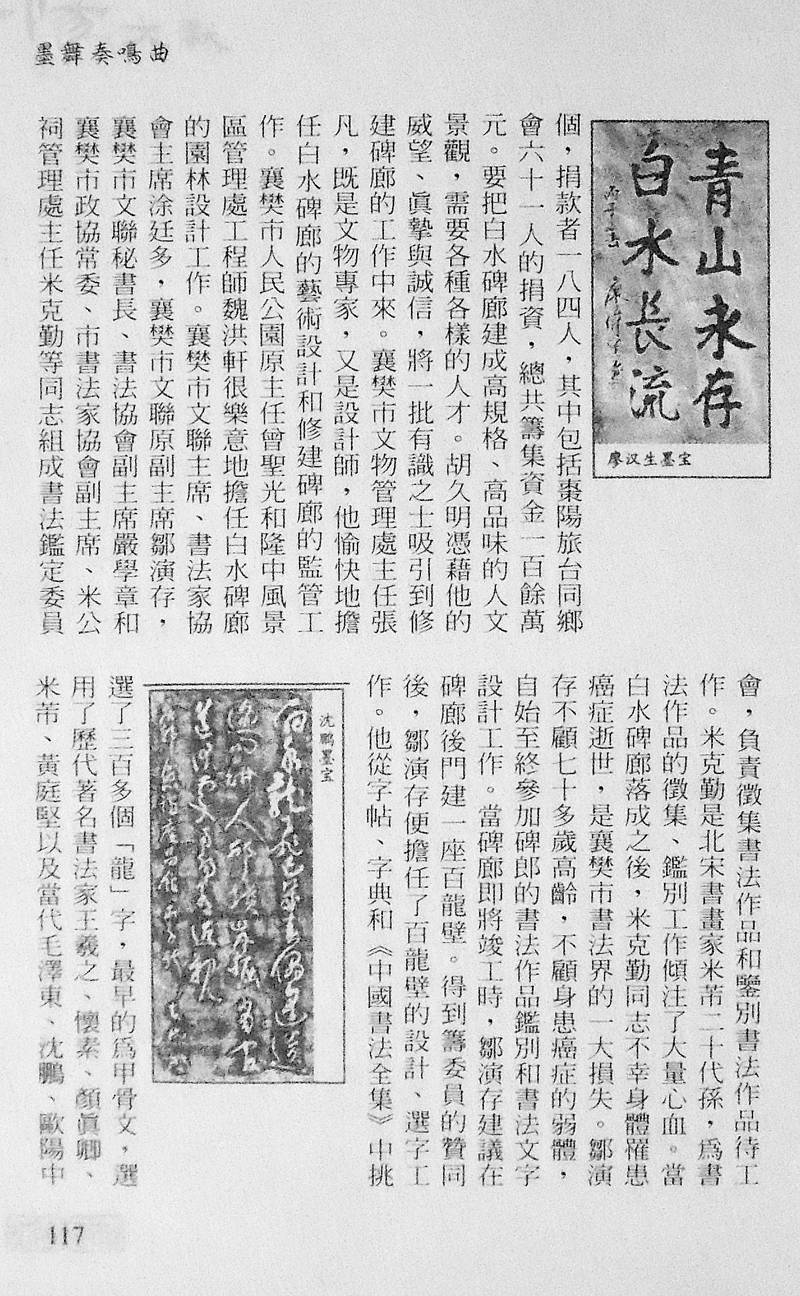 墨舞奏鳴曲
青山永存
白水長流
廖汉生墨宝
個，捐款者一八四人，其中包括棗陽旅台同鄉
會六十一人的捐資，總共籌集資金一百餘萬
元。要把白水碑廊建成高規格、高品味的人文
景觀，需要各種各樣的人才。胡久明憑藉他的
威望、眞摯與誠信，將一批有識之士吸引到修
建碑廊的工作中來。襄樊市文物管理處主任張
凡，既是文物專家，又是設計師，他愉快地擔
任白水碑廊的藝術設計和修建碑廊的監管工
作。襄樊市人民公園原主任曾聖光和隆中風景
區管理處工程師魏洪軒很樂意地擔任白水碑廊
的園林設計工作。襄樊市文聯主席、書法家協
會主席涂廷多，襄樊市文聯原副主席鄒演存，
襄樊市文聯秘書長、書法協會副主席嚴學章和
襄樊市政協常委、市書法家協會副主席、米公
祠管理處主任米克勤等同志組成書法鑑定委員
會，負責徵集書法作品和鑒別書法作品待工
作。米克勤是北宋書畫家米芾二十代孫，爲書
法作品的徵集、鑑別工作傾注了大量心血。當
白水碑廊落成之後，米克勤同志不幸身體罹患
癌症逝世，是襄樊市書法界的一大損失。鄒演
存不顧七十多歲高齡，不顧身患癌症的弱體，
自始至終參加碑郎的書法作品鑑別和書法文字
設計工作。當碑廊即將竣工時，鄒演存建議在
碑廊後門建一座百龍壁。得到籌委員的贊同
後，鄒演存便擔任了百龍壁的設計、選字工
作。他從字帖、字典和《中國書法全集》中挑
沈鵬墨宝
選了三百多個「龍」字，最早的爲甲骨文，選
用了歷代著名書法家王羲之、懷素、顏眞卿、
米芾、黃庭堅以及當代毛澤東、沈鵬、歐陽中
117